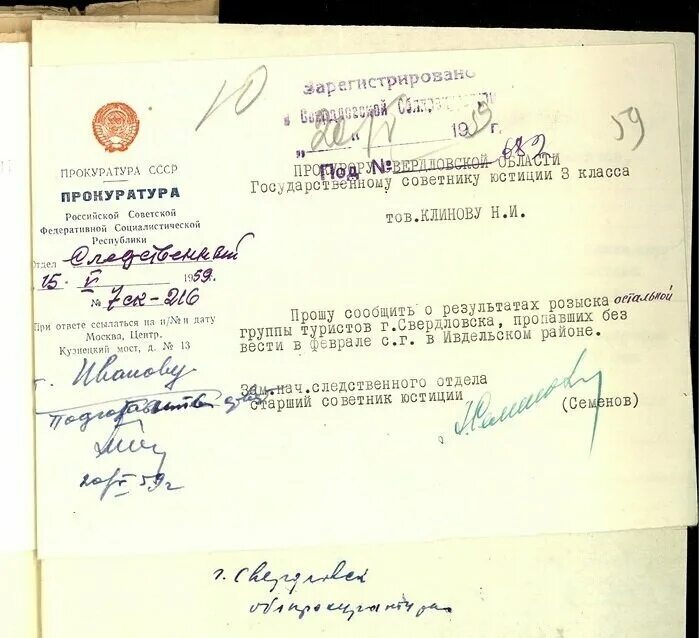 10
Зарегистрировано
в Свердловской Обл.
„20“ V 1959 г.
Под № 682
59
ПРОКУРОРУ СВЕРДЛОВСКОЙ ОБЛАСТИ
Государственному советнику юстиции 3 класса
тов.КЛИНОВУ Н.И.
ПРОКУРАТУРА СССР
ПРОКУРАТУРА
Российской Советской
Федеративной Социалистической
Республики
Отдел Следственный
15. V 1959.
№ 7ск-216
При ответе ссылаться на н/№ и дату
Москва, Центр.
Кузнецкий мост, д. № 13
Прошу сообщить о результатах розыска остальной
группы туристов г.Свердловска, пропавших без
вести в феврале с.г. в Ивдельском районе.
Зам.нач.следственного отдела
старший советник юстиции
(Семенов)
т. Иванову
20/V 59 г
г. Свердловск
облпрокуратура